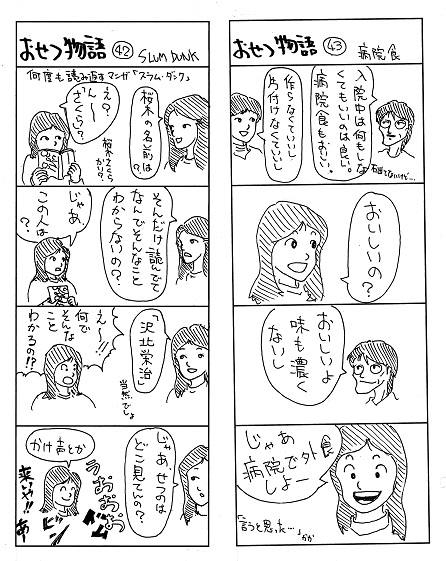 おせつ物語 ㊷ SLUM DUNK
何度も読み返すマンガ「スラム・ダンク」
桜木の
名前は?
え?
んー
さくら?
そんだけ読んでて
なんでそんなこと
わからないの?
じゃあ
この人は
?
「沢北栄治」
当然でしょ
えー!!
何で
そんな
こと
わかるの!?
じゃあ、せつのは
どこ見てんの?
かけ声とか
うおおおお
来いや!!
おせつ物語 ㊸ 病院食
入院中は何もしな
くてもいいのは良い。
病院食もおいしい。
作らなくていいし
片付けなくていいし
おいしいの?
おいしいよ
味も濃く
ないし
じゃあ
病院で外食
しよー
「言うと思った…」